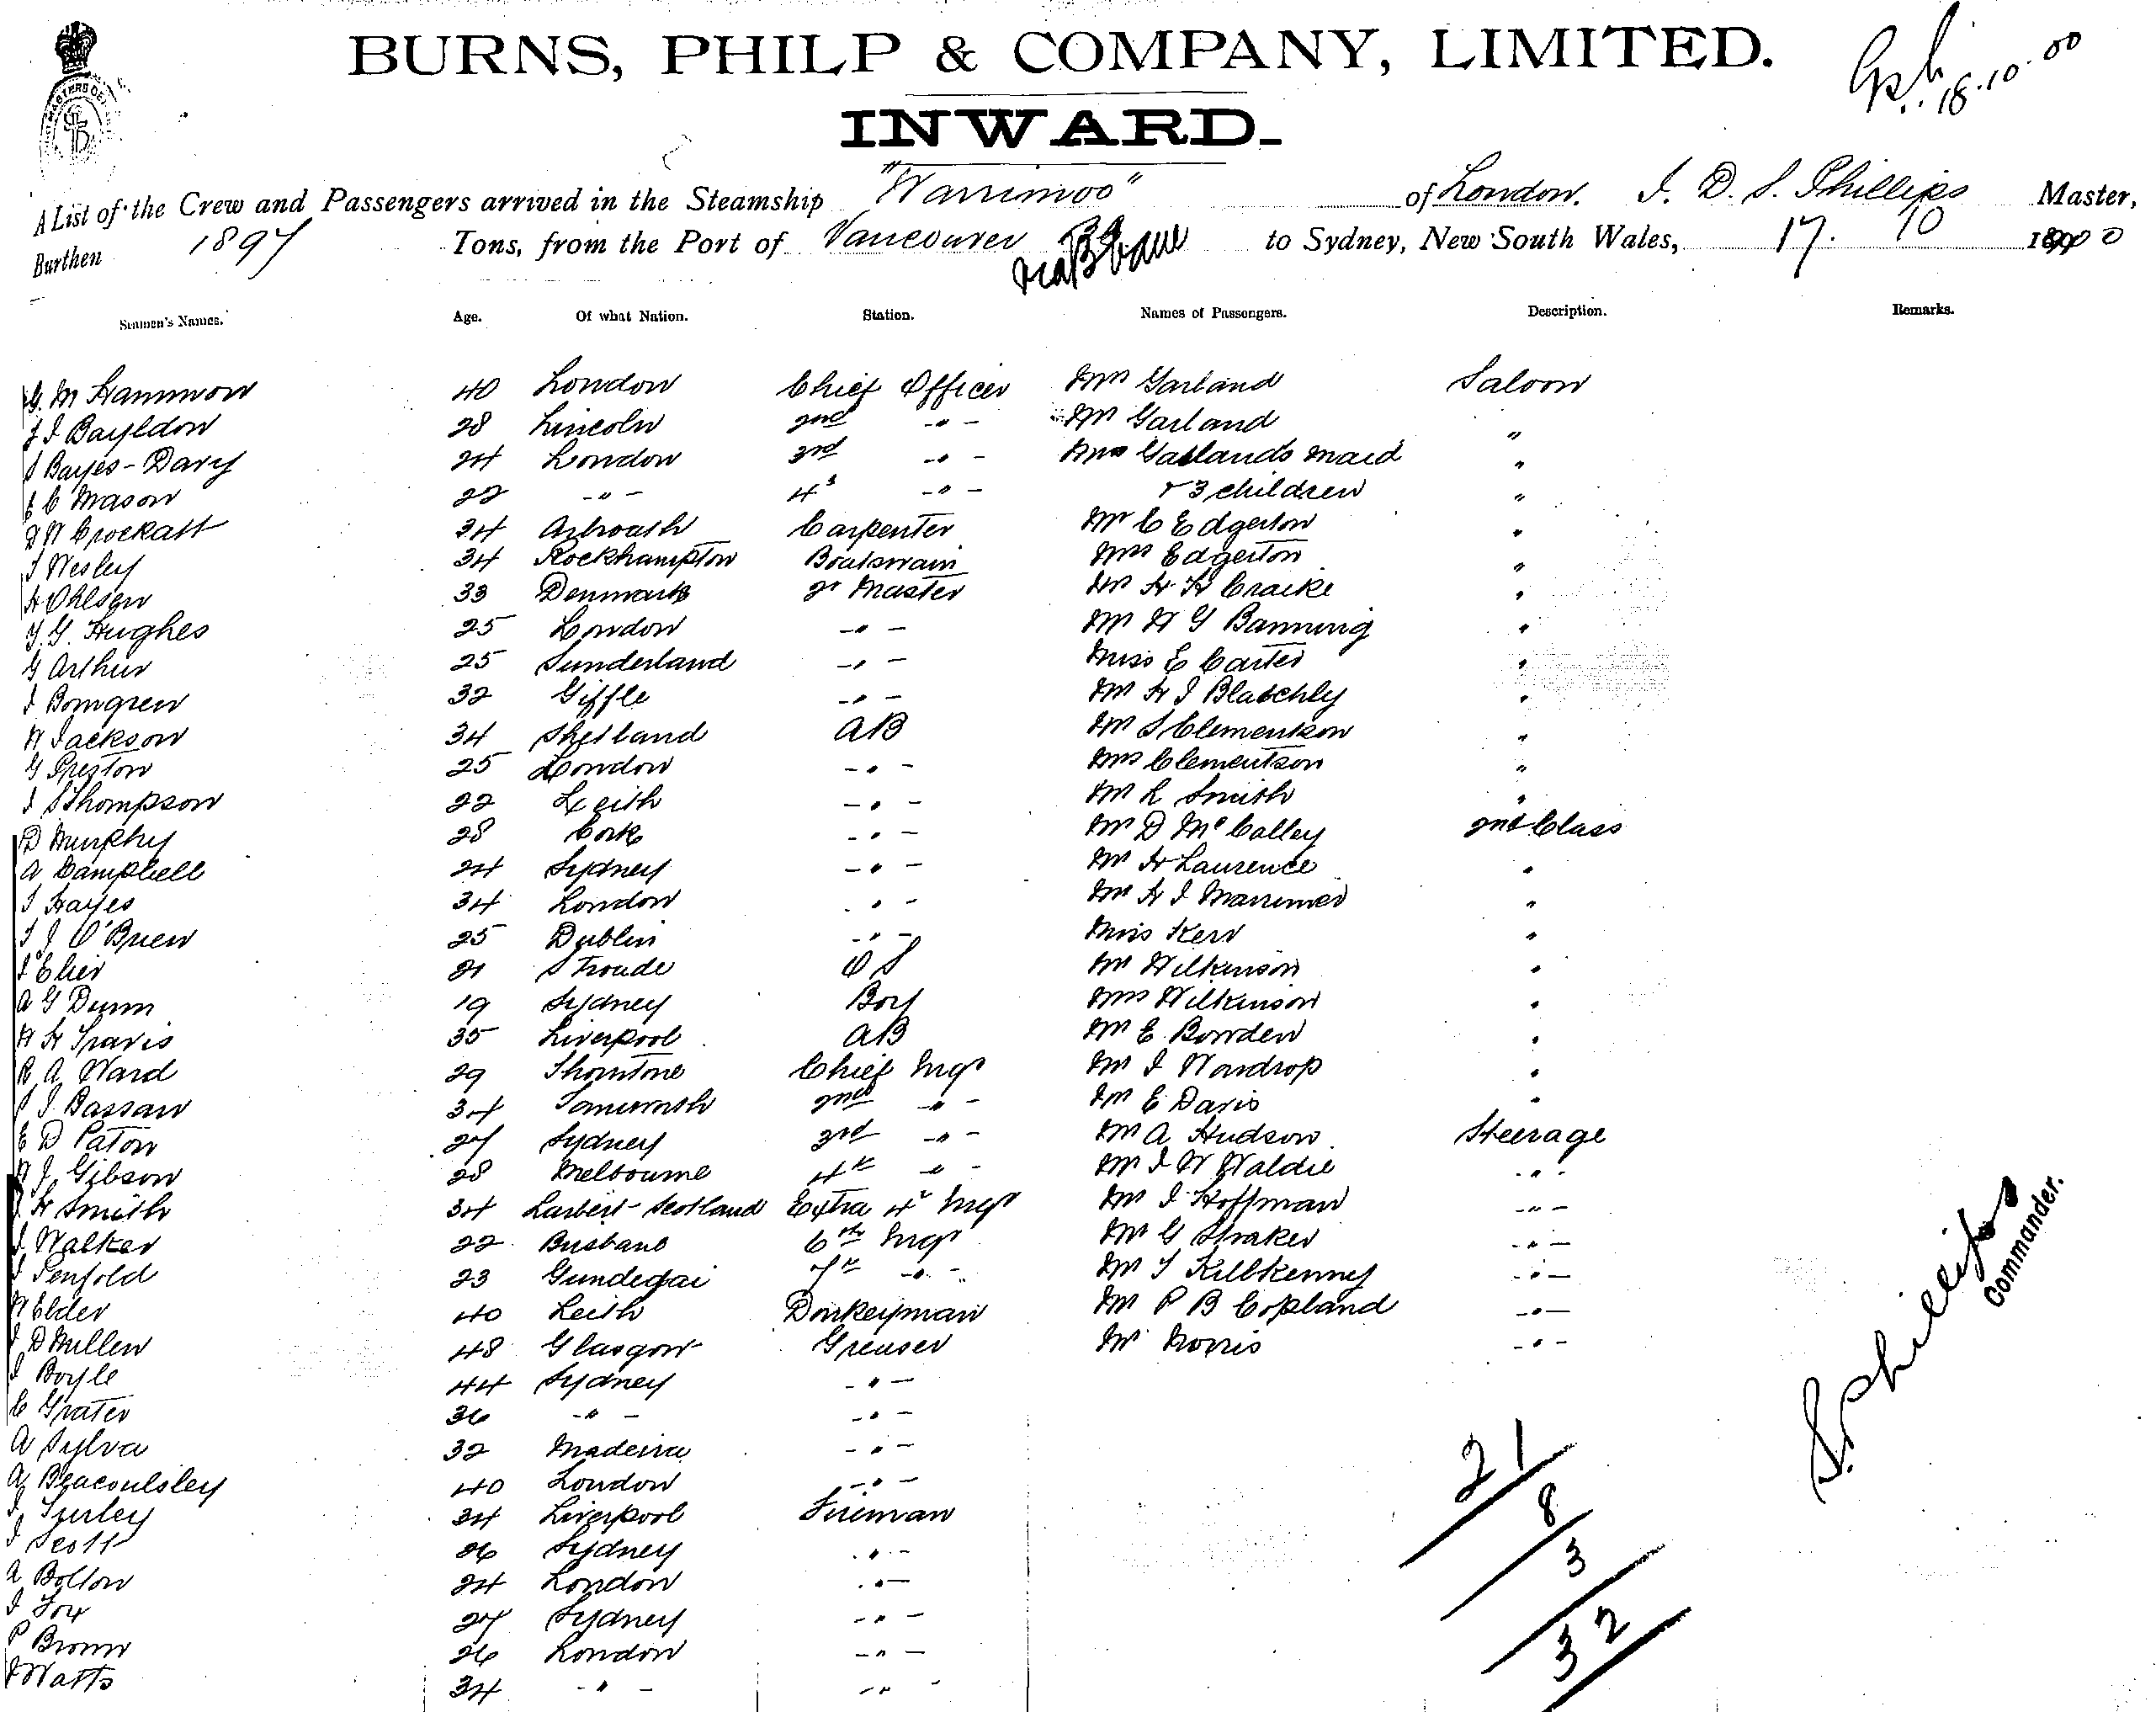 BURNS, PHILP & COMPANY, LIMITED.
18.10.00
INWARD.
A List of the Crew and Passengers arrived in the Steamship "Warrimoo" of London. J. D. S. Phillips Master,
Burthen 1897 Tons, from the Port of Vancouver via B'bane to Sydney, New South Wales, 17. 10 1900
Seamen's Names. Age. Of what Nation. Station. Names of Passengers. Description. Remarks.
G. M Hammon 40 London Chief Officer Mrs Garland Saloon
J J Bayldon 28 Lincoln 2nd -"- Mr Garland "
S Bayes-Davy 24 London 3rd -"- Mrs Garlands maid "
E C Mason 22 -"- 4 -"- & 3 children "
D W Crockatt 24 Arbroath Carpenter Mr C Edgerton "
J Wesley 34 Rockhampton Boatswain Mrs Edgerton "
H Ohlsen 33 Denmark Qr Master Mr H H Craike "
T. G. Hughes 25 London -"- Mr W G Banning "
G Arthur 25 Sunderland -"- Miss E Carter "
J Bomgren 32 Giffle -"- Mr H J Blatchly "
W Jackson 34 Shetland AB Mr S Clementson "
G Preston 25 London -"- Mrs Clementson "
J S Thompson 22 Leith -"- Mr R Smith "
D Murphy 28 Cork -"- Mr D McCalley 2nd Class
A Campbell 24 Sydney -"- Mr H Laurence "
J Hayes 34 London -"- Mr H J Marrimer "
T J O'Brien 25 Dublin -"- Miss Kerr "
J Elier 21 Stroude OS Mr Wilkinson "
A G Dunn 19 Sydney Boy Mrs Wilkinson "
W H Travis 35 Liverpool AB Mr E Bowden "
R A Ward 29 Chief Engr Mr J Wardrop "
J Bassan 34 Tamworth 2nd -"- Mr E Davis "
E D Paton 27 Sydney 3rd -"- Mr A Hudson Steerage
W J. Gibson 28 Melbourne 4th -"- Mr J W Waldie -"-
J H Smith 34 Larbert-Scotland Extra 4th Engr Mr J Hoffman -"-
J Walker 22 Brisbane 6th Engr Mr G Straker -"-
J Penfold 23 Gundegai 7th -"- Mr T Killkenney -"-
W Elder 40 Leith Donkeyman Mr P B Copland -"-
J D Millen 48 Glasgow Greaser Mr Norris -"-
J Boyle 44 Sydney -"-
C Grater 36 -"- -"-
A Sylva 32 Madeira -"-
A Beaconlsley 40 London -"-
J Turley 34 Liverpool Fireman
J Scott 26 Sydney -"-
A Bolton 24 London -"-
J Fox 27 Sydney -"-
P Brown 26 London -"-
J Watts 34 -"- -"-
21
8
3
32
S Phillips
Commander.